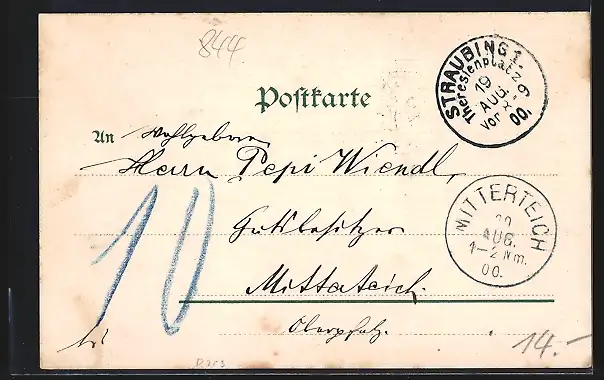 844.
STRAUBING 1.
Theresienplatz
19
AUG.
Vor 8-9
00.
Postkarte
An Wohlgeboren
Herrn Pepi Wiendl,
MITTERTEICH
AUG.
1-2 Nm.
00.
10
Gutsbesitzer
Mitterteich.
Oberpfalz.
14.-